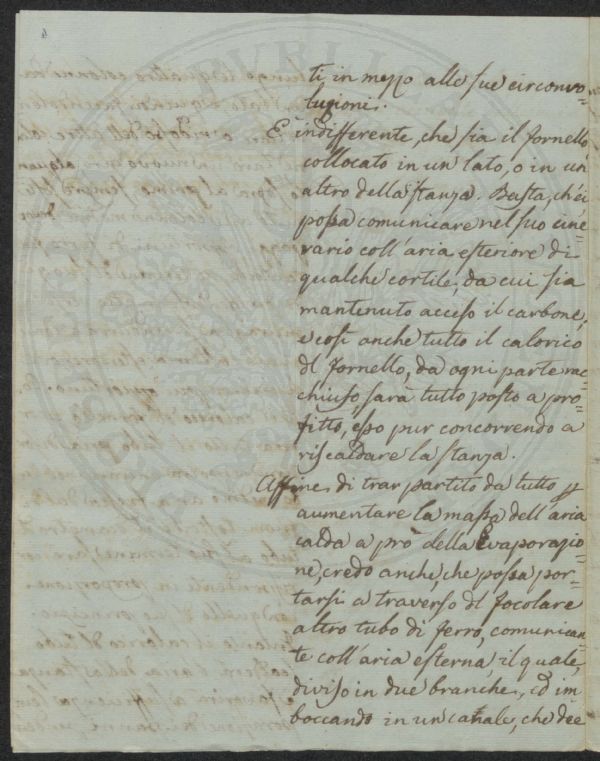 4
ti in mezzo alle sue circonvo-
luzioni.
È indifferente, che sia il fornello
collocato in un lato, o in un
altro della stanza. Basta, ch'ei
possa comunicare nel suo cine-
rario coll'aria esteriore di
qualche cortile, da cui sia
mantenuto acceso il carbone,
e così anche tutto il calorico
dl fornello, da ogni parte
chiuso, sarà tutto posto a pro-
fitto, esso pur concorrendo a
riscaldare la stanza.
Affine di trar partito da tutto p
aumentare la massa dell'aria
calda a prò della Evaporazio-
ne, credo anche, che possa por-
tarsi a traverso dl focolare
altro tubo di ferro, comunican-
te coll'aria esterna, il quale,
diviso in due branche, ed im
boccando in un canale, che dee